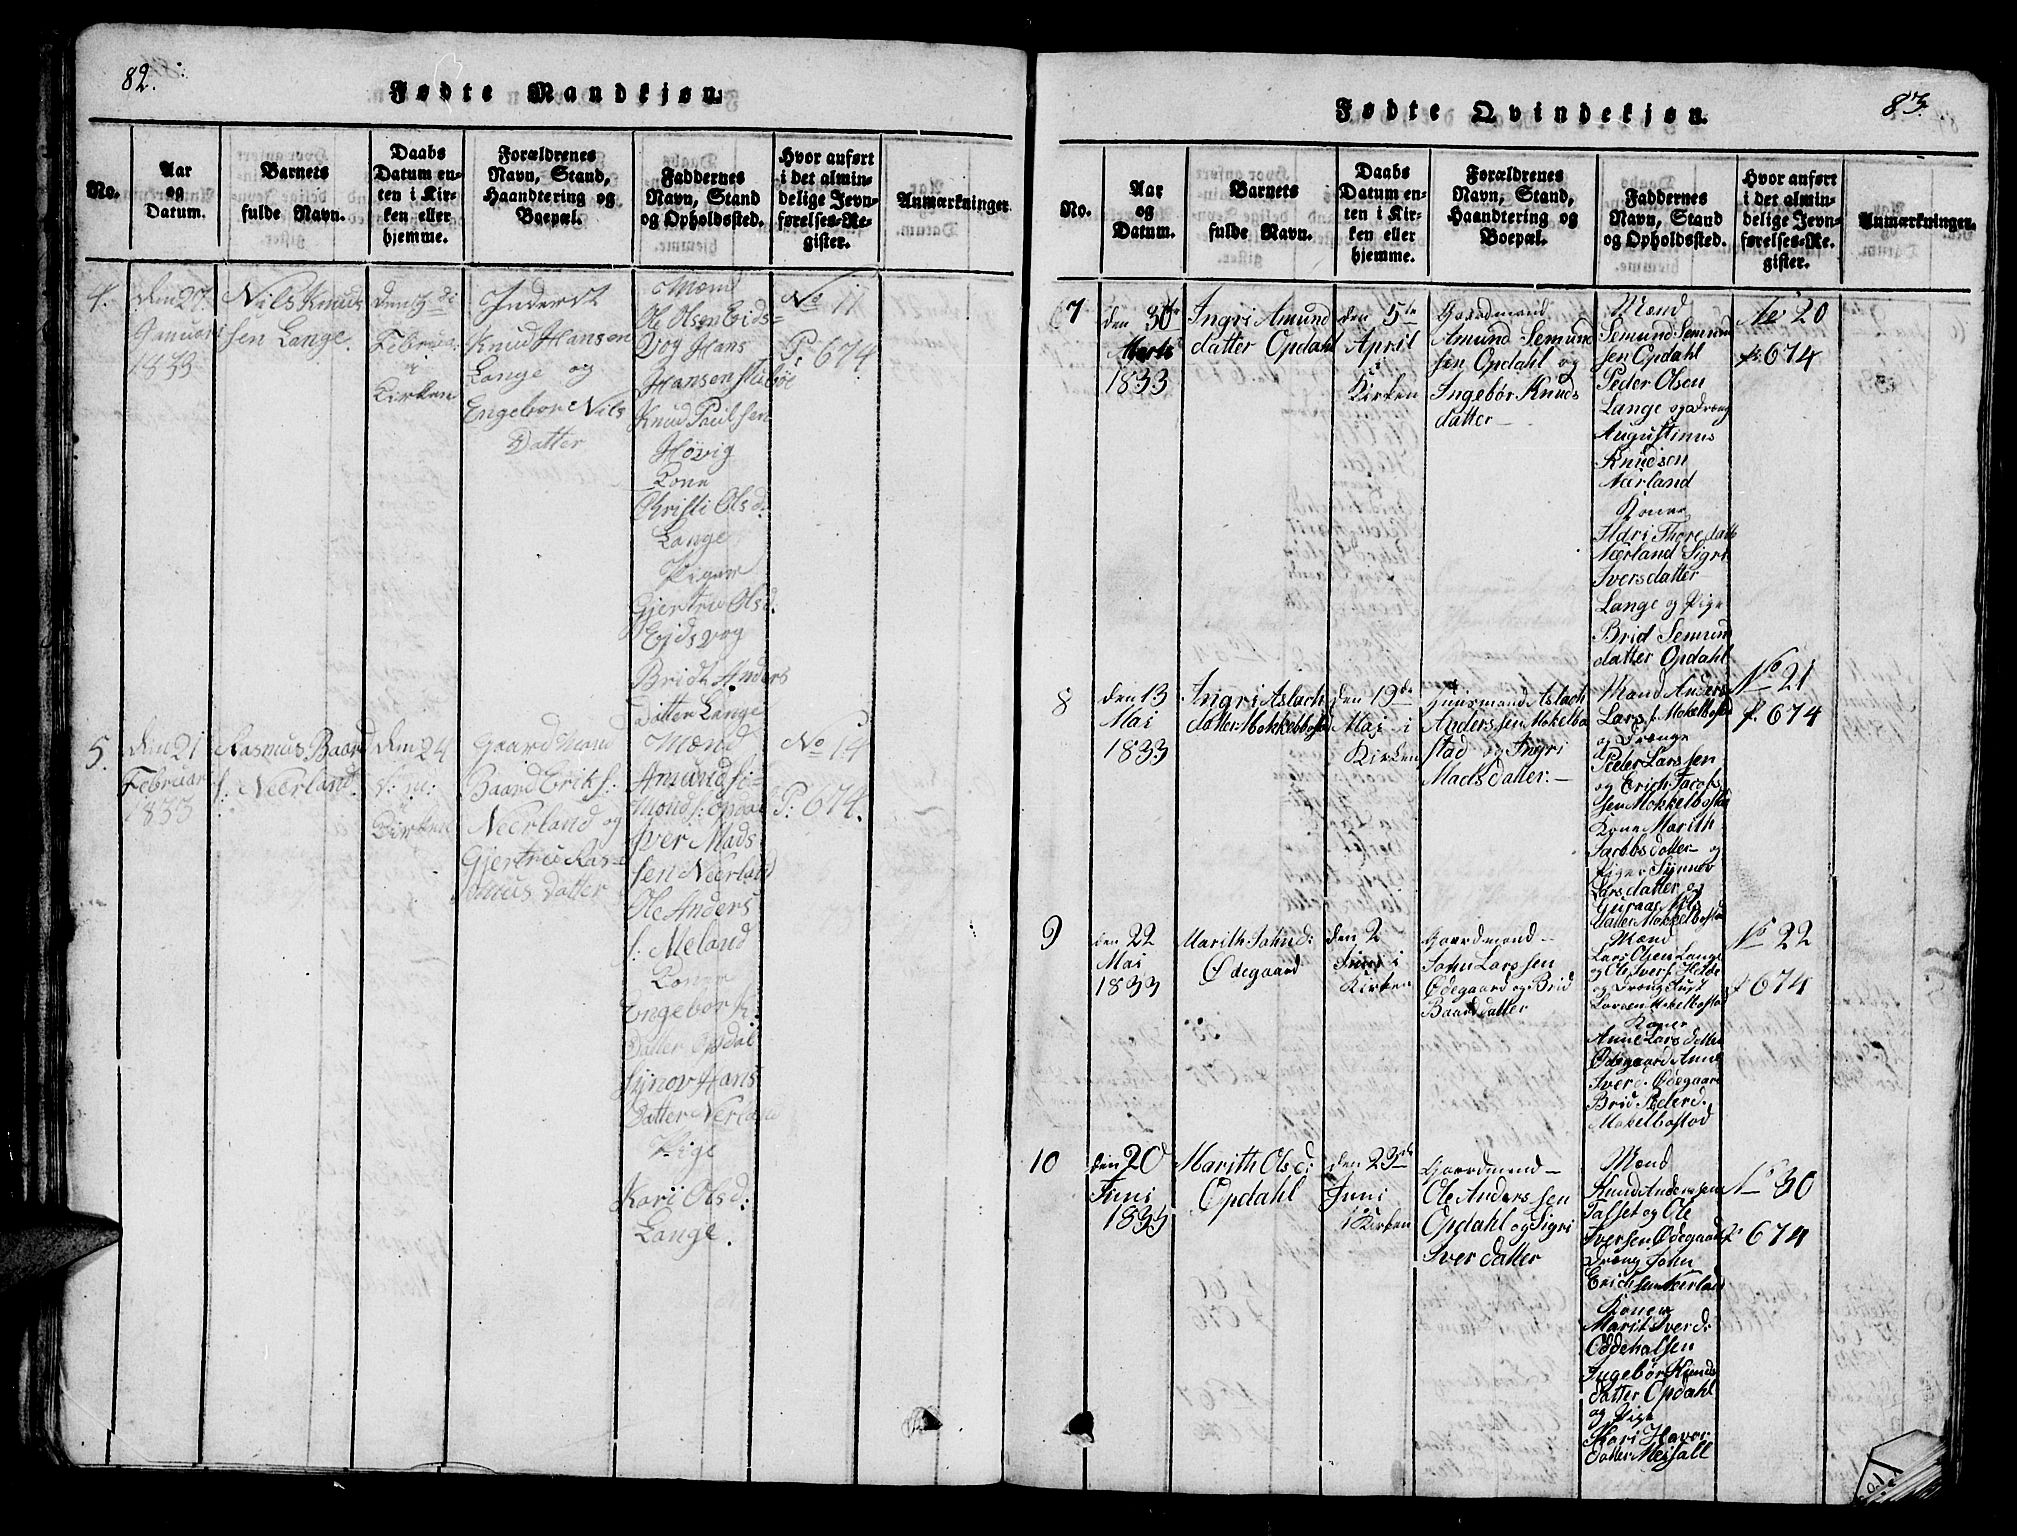 82.
Fødte Mandkjøn.
No.
Aar
og
Datum.
Barnets
fulde Navn.
Daabs
Datum en-
ten i Kir-
ken eller
hjemme.
Forældrenes
Navn, Stand,
Haandtering og
Boepæl.
Faddernes
Navn, Stand
og Opholdssted.
Hvor anført
i det almin-
delige Jevn-
førelses-Re-
gister.
Anmærkninger.
4.
den 27.
Januari
1833
Nils Knuds
sen Lange.
Februar
i
Kirken
Inderst
Knud Hansen
Lange og
Engebor Nils
Datter
Mænd
Ole Olsen Eids-
vog Hans
Hansen
Knud Poulsen
Høvig
Kone
Christi Olsd.
Lange
Piger
Gjertru Olsd.
Eidsvog
Bridt Anders
Datter Lange
No 11
P: 674
5.
den 21
Februar
1833
Rasmus Baard
s: Neerland.
den 24
s: m:
i
Kirken
Gaardmand
Baard Eriks:
Neerland og
Gjertru Ras-
mus Datter
Mænd
Amund Si-
mond s: Opdal
Iver Mads
sen Neerland
Ole Anders
s: Meland
Koner
Engebor K:
Datter Opdal
Synov Hans
Datter Nerland
Pige
Kari Olsd:
Lange.
No 14
P: 674.
83.
Fødte Qvindekjøn.
No.
Aar
og
Datum.
Barnets
fulde Navn.
Daabs
Datum en-
ten i Kir-
ken eller
hjemme.
Forældrenes
Navn, Stand,
Haandtering og
Boepæl.
Faddernes
Navn, Stand
og Opholdssted.
Hvor anført
i det almin-
delige Jevn-
førelses-Re-
gister.
Anmærkninger.
7
den 30te
Marts
1833
Ingri Amund
datter Opdahl
den 5te
April
i
Kirken
Gaardmand
Amund Semund
sen Opdahl og
Ingebør Knuds
datter
Mænd
Semund Semund
sen Opdahl
Peder Olsen
Lange og Dreng
Augustinus
Knudsen
Nærland
Koner
Ildri Thore datt
Nærland Sigri
Iversdatter
Lange og Pige
Brid Semund
datter Opdahl
No 20
p: 674
8
den 13
Mai
1833
Ingri Aslach
datter Mokkelbostad
den 19de
Mai i
Kirken
Aslach
Anderssen Mokelbo
stad og Ingri
Mads datter.
Mand Anders
Lars s. Mokelbostad
og Drenge
Peder Larssen
og Erich Jacob
sen Mokkelbostad
Kone Marith
Jacobsdatter og
Piger Synnev
Larsdatter og
Guraas Nils
datter Mokkelbostad
No 21
p. 674
9
den 22
Mai
1833
Marith Johnd:
Ødegaard
den 2
Juni i
Kirken
Gaardmand
John Larssen
Ødegaard og Brid
Baardsdatter
Mænd
Lars Olsen Lange
og Ole Ivers. Helde
og Dreng
Larsen Mokelbostad
Koner
Anne Lars datter
Ødegaard Anne
Iverd. Ødegaard
Brid Pederd.
Mokelbostad
No 22
p 674
10
den 20
Juni
1833
Marith Olsd:
Opdahl
den 23de
Juni
i Kirken
Gaardmand
Ole Anderssen
Opdahl og Sigri
Iver datter
Mænd
Knud Anderssen
Talset og Ole
Iversen Ødegaard
Dreng John
Erichsen Nærland
Koner
Marit Iverd:
Oddehalsen
Ingebør Knuds
datter Opdahl
og Pige
Kari Havor
datter Meisall
No 30
p 674